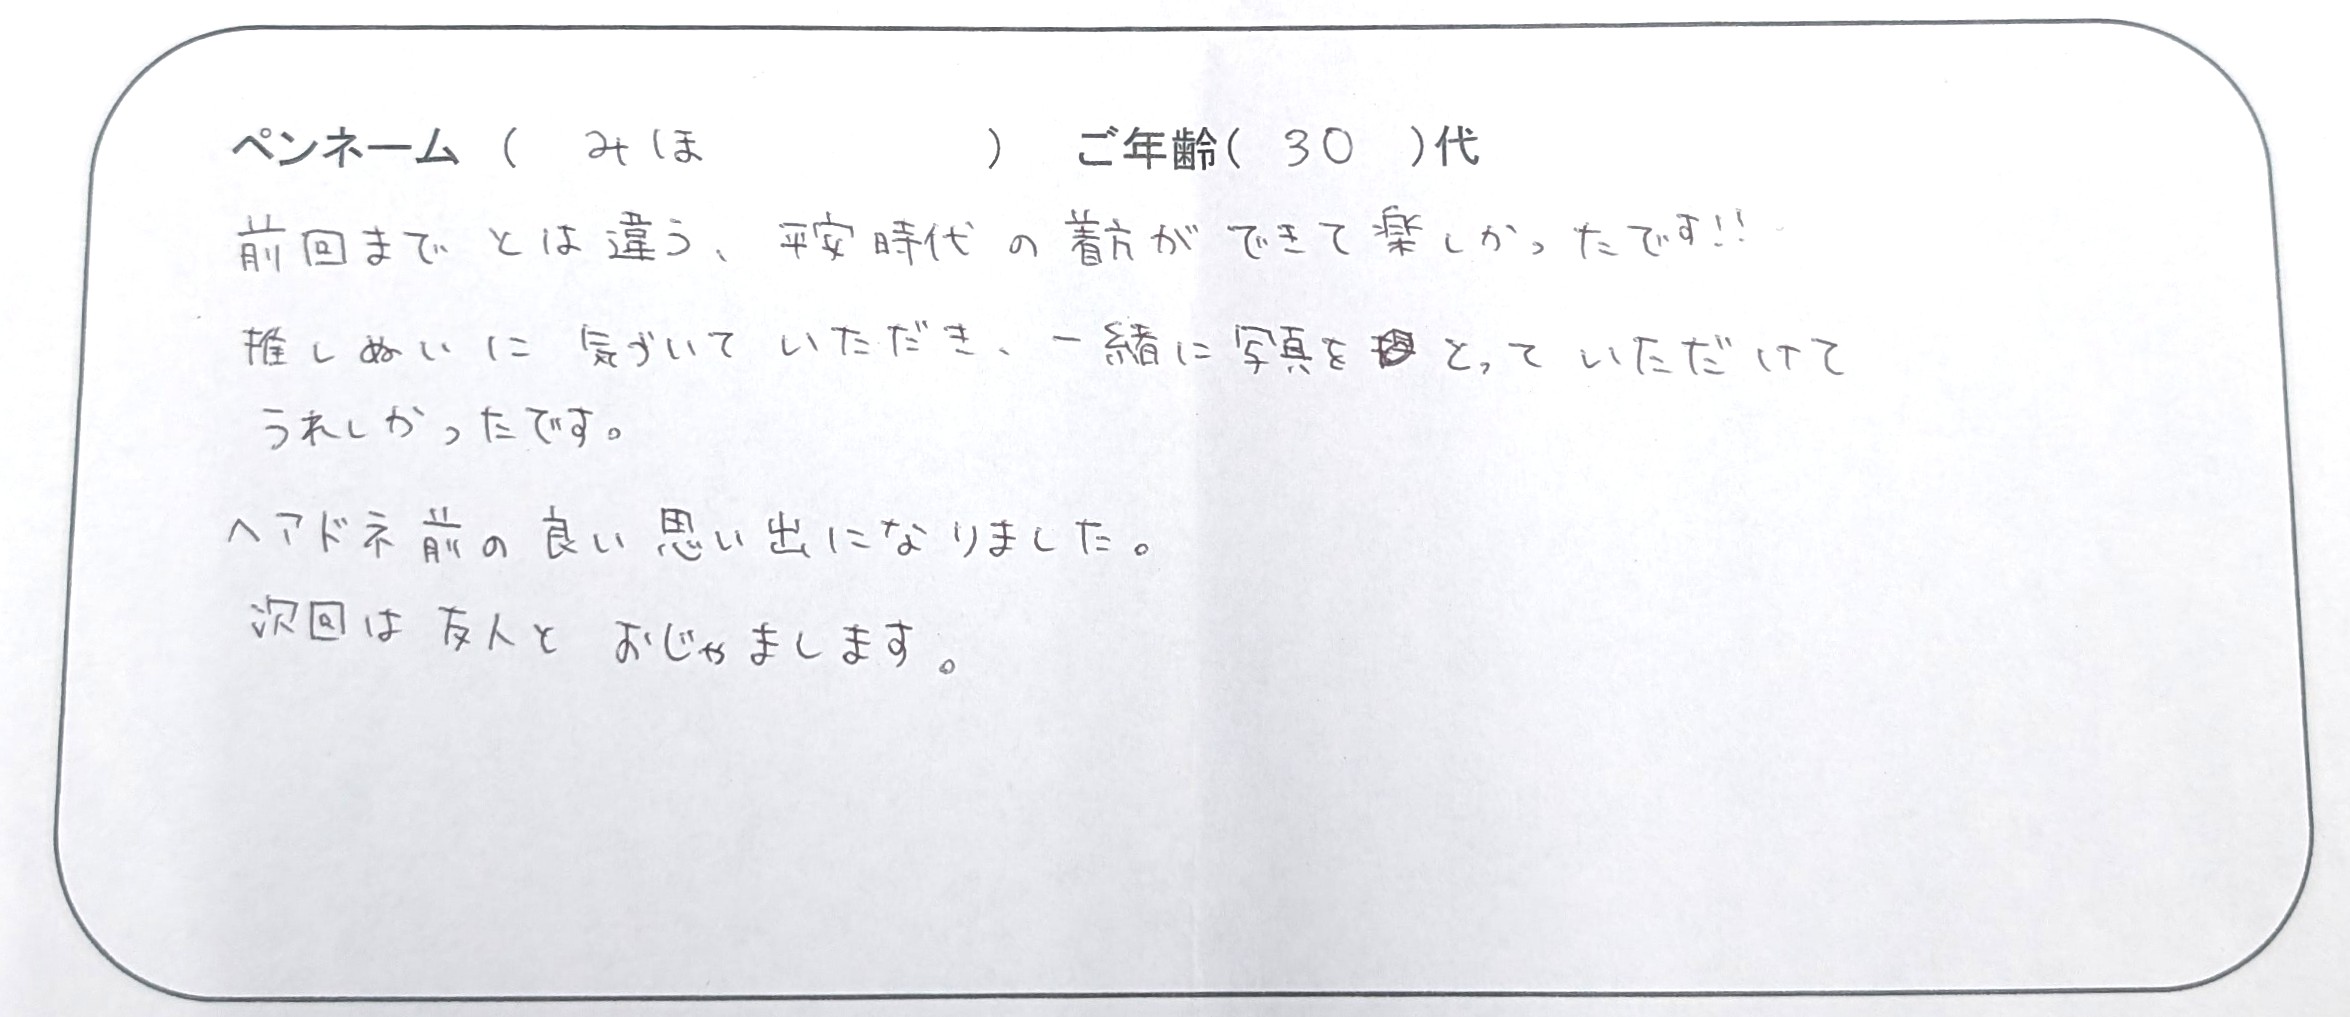 ペンネーム ( みほ ) ご年齢( 30 )代
前回までとは違う、平安時代の着方ができて楽しかったです!!
推しぬいに気づいていただき、一緒に写真をとっていただけて
うれしかったです。
ヘアドネ前の良い思い出になりました。
次回は友人とおじゃまします。